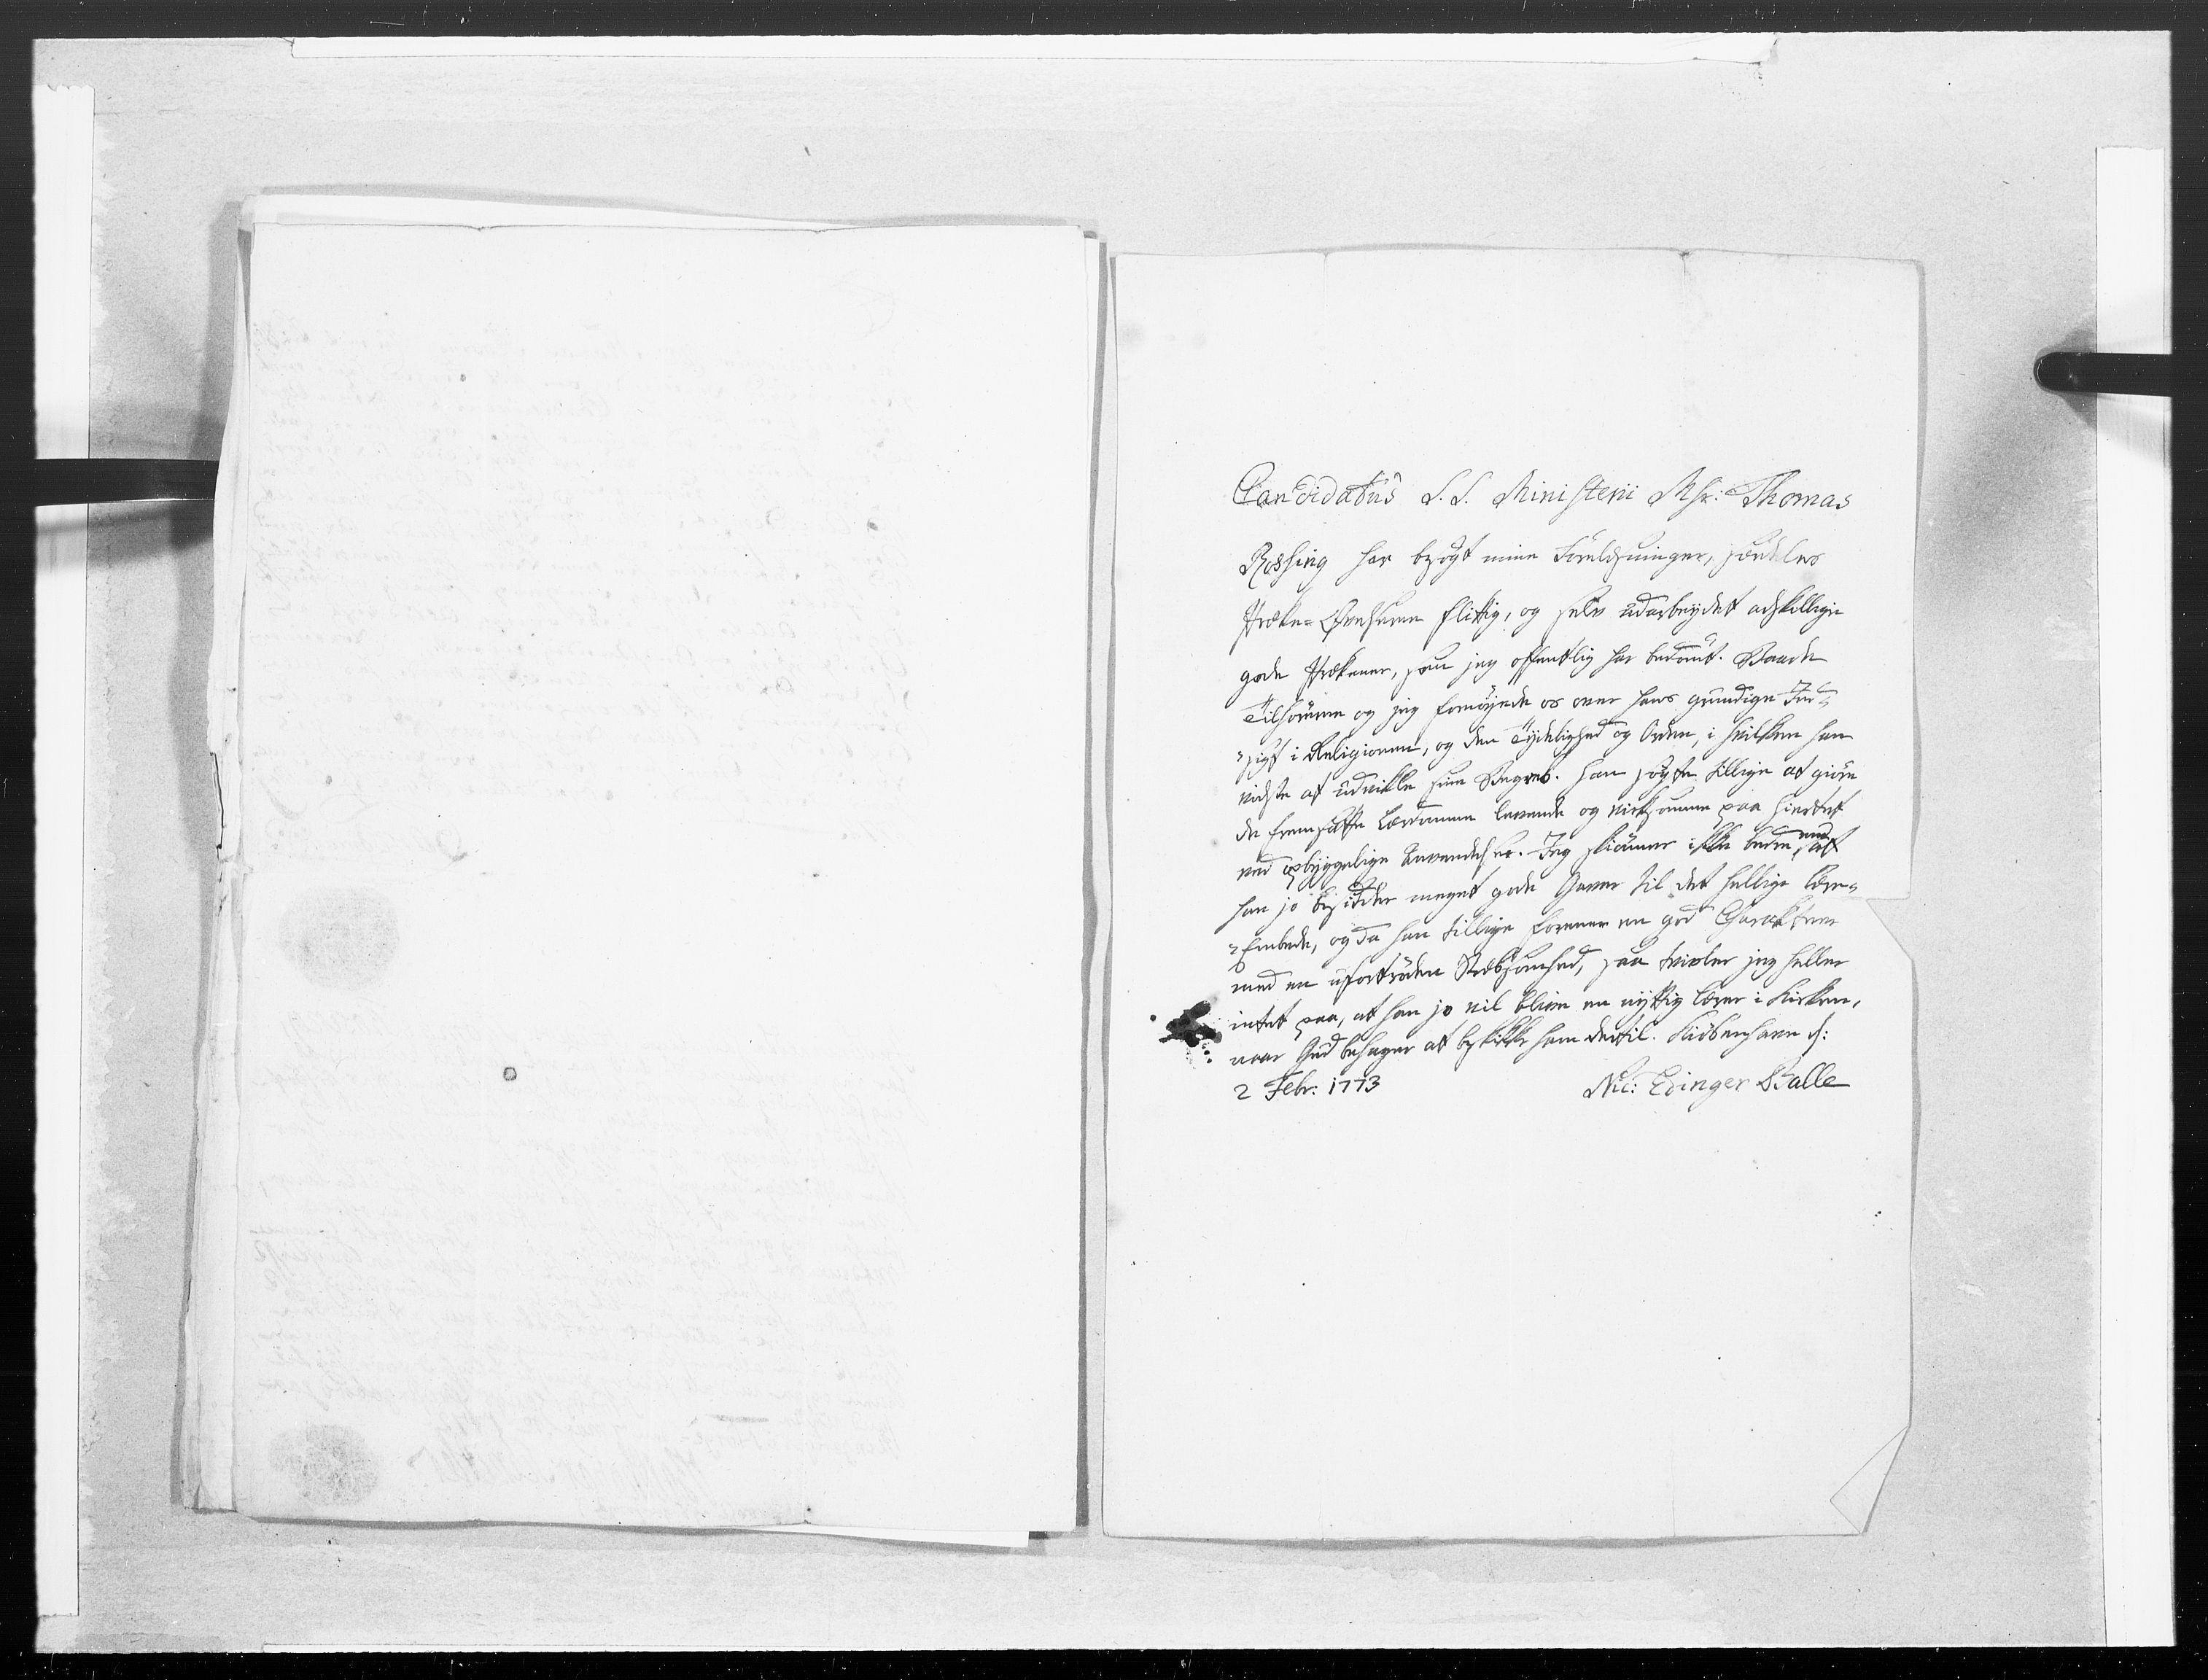 Candidatus S.S. Ministerii Msr: Thomas
Rossing har besøgt mine Forelæsninger, særdeles
Præke-Øvelserne flittig, og selv udarbeydet adskillige
gode Prækener, som jeg offentlig har bedømt. Baade
Tilhørerne og jeg fornøyede os over hans grundige Ind-
-sigt i Religionen, og den Tydelighed og Orden, i hvilken han
vidste at udvikle sine Begreb. Han søgte tillige at giøre
de fremsatte Lærdomme levende og virksomme paa Hiertet
ved opbyggelige Anvendelser. Jeg skiønner ikke bedre, end at
han jo besidder meget gode Gaver til det hellige Lære-
-Embede, og da han tillige forener en god Charakteer
med en ufortrøden Stræbsomhed, saa tvivler jeg heller
intet paa, at han jo vil blive en nyttig Lærer i Kirken,
naar Gud behager at beskikke ham dertil. Kiøbenhavn d:
2 Febr: 1773 Nic: Edinger Balle